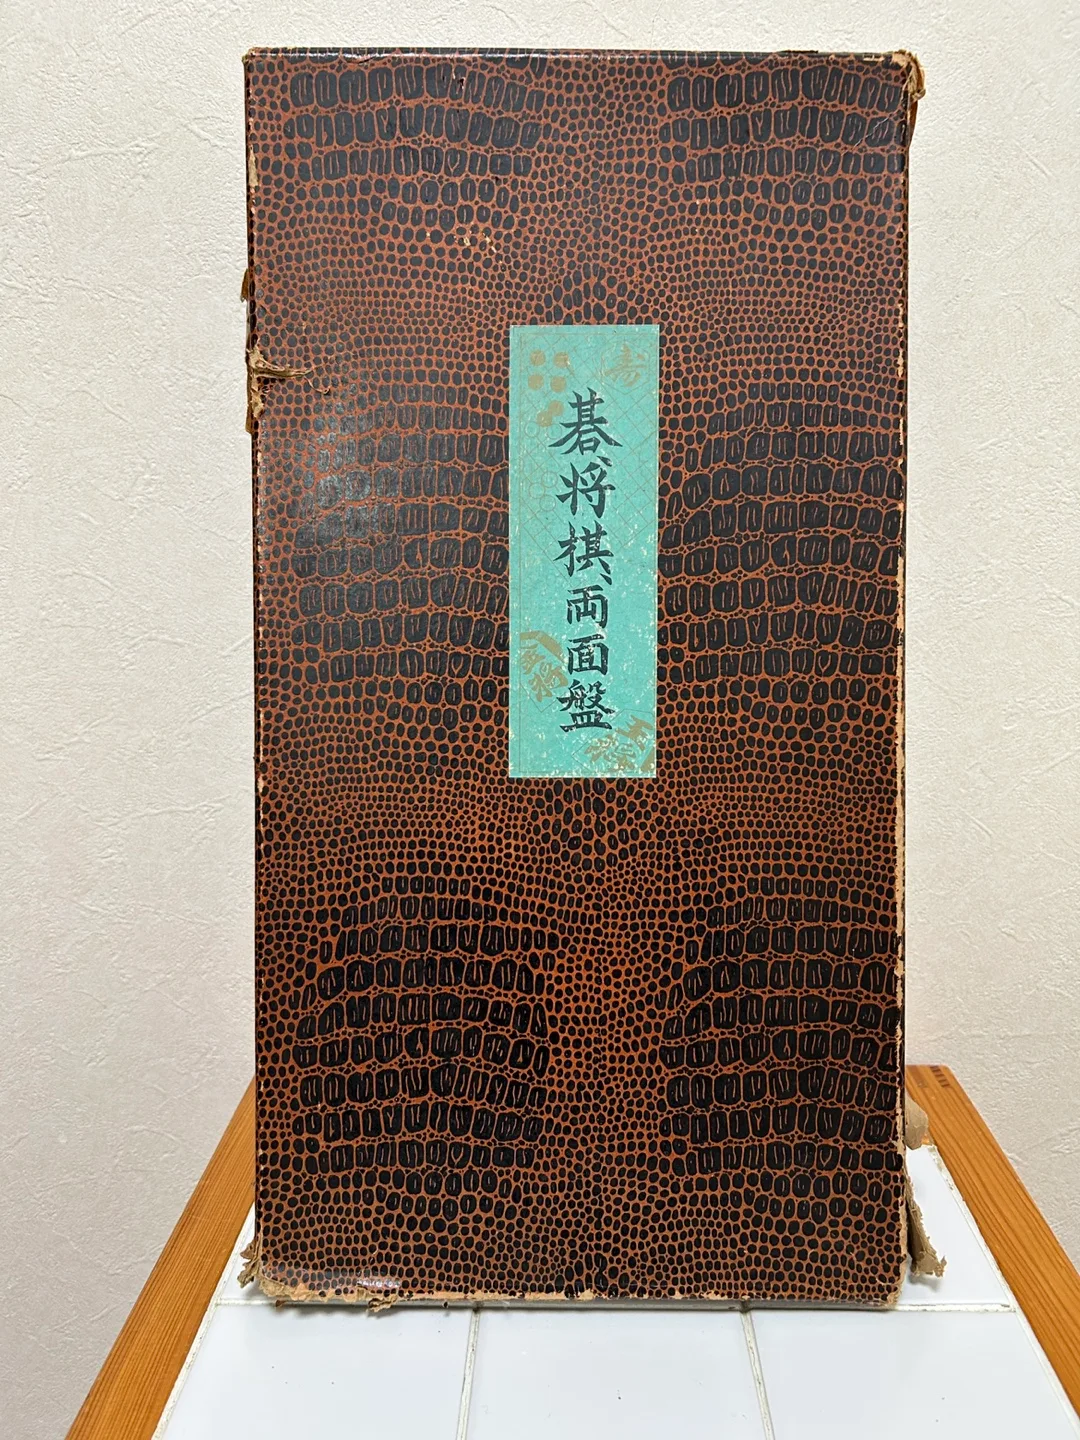 碁、将棋、両面盤
寿